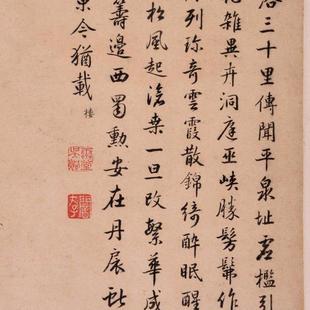 三十里傳聞平泉址君檻引
花雜異卉洞庭巫峽勝髣髴作
列珍奇雲霞散錦綺醉眠醒
松風起滄桑一旦改繁華成
籌邊西蜀勲安在丹扆
今猶載